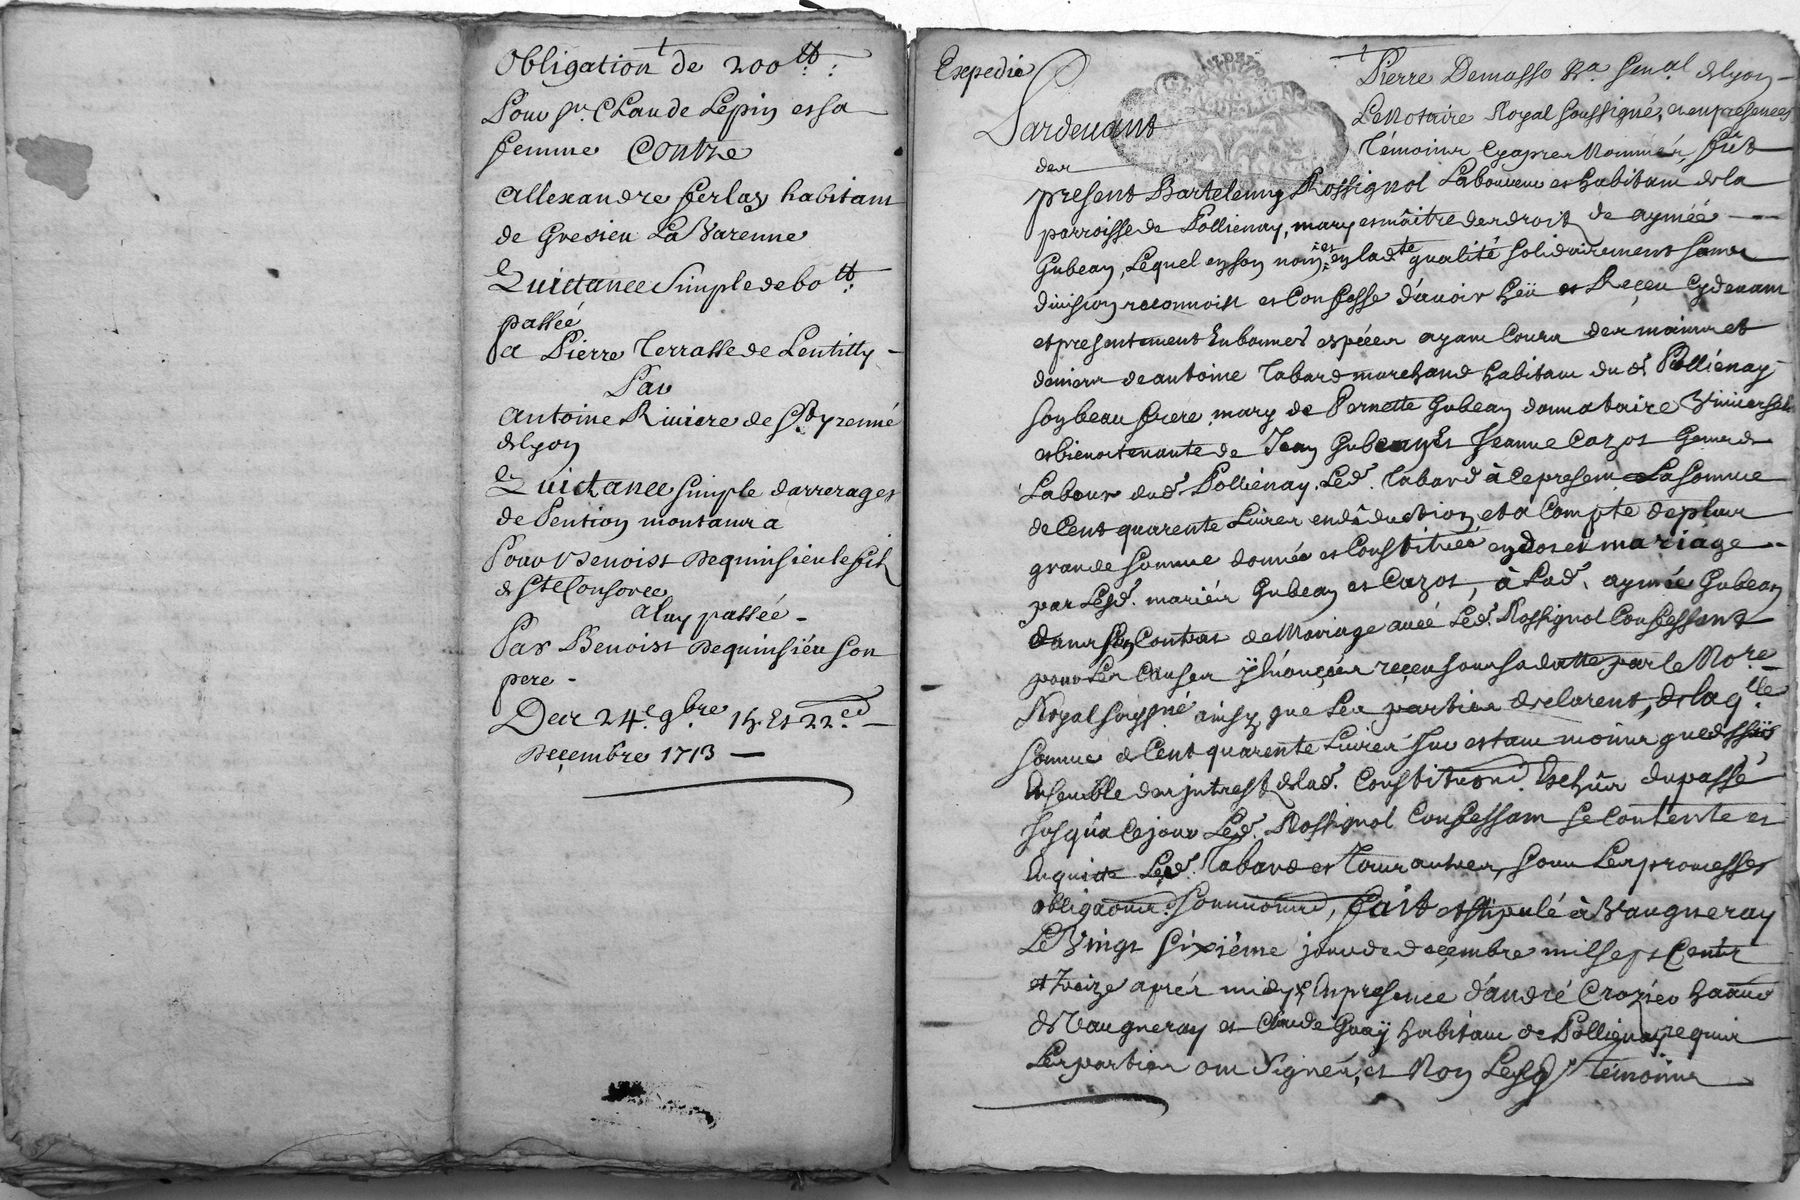 Obligation de 200tt:
Pour sr. Claude Lepin et sa
femme Contre
Allexandre ferlay habitant
de Gresieu La Varenne
Quictance Simple de 60tt:
passée
a Pierre Terrasse de Lentilly -
Par
Antoine Riviere de St yrenné
de lyon
Quictance simple darrerages
de Pention montant a
Pour Benoist Dequinsieu le fils
de Ste Consorce
a luy passée -
Par Benoist Dequinsiéu son
pere -
Des 24e. 9bre 15. Et 22ed
Deçembre 1713 —
Expedié
Pardevant Pierre Demasso Senal de lyon -
Le Notaire Royal soussigné, et en presences
des Témoins Cyapres Nommés, fût
present Bartelemy Rossignol Laboureur et habitant de la
parroisse de Pollienay, mary et mâitre des droits de aymée
Gubean, Lequel en son nom et en lade qualité solidairement sans
division reconnoist et Confesse d'avoir heü et Reçeu Cydevant
et presentement En bonnes espéces ayant Cours des mains et
deniers de antoine Tabard marchand habitant dud Pollienay
son beau frere mary de Pernette Gubean donnataire Vniverselle
et bientenante de Jean Gubean et Jeanne Cazot Gens de
Labour dud. Pollienay. Led. Tabard à ce present La somme
de Cent quarente Livres en déduction et a Compte de plus
grande somme donnée et Constituée en dos et mariage
par Lesd. mariés Gubean et Cazot, à Lad. aymée Gubean
dans son Contrat de Mariage avec Led. Rossignol Confessant
pour Les Causes y énonçées reçeu sous sa datte par le Nore.
Royal soussigné ainsy que Les parties declarent, de laqlle
somme de Cent quarente Livres sur et tant moins que dessus
Ensemble des jntrest de lad. Constitution Echûs du passé
jusqu'a Ce jour Led. Rossignol Confessant se Contente et
En quitte Led. Tabard et Tous autres, sous Les promesses
obligaons. soumnoins, fait et stipulé à Vaugneray
Le Vingt sixiéme jour de deçembre mil sept Cents
et treize aprés midy En presence d'andré Crozier
de Vaugneray et Claude Guaÿ habitant de Pollienay
Les parties ont signé, et Non Lesd. témoins